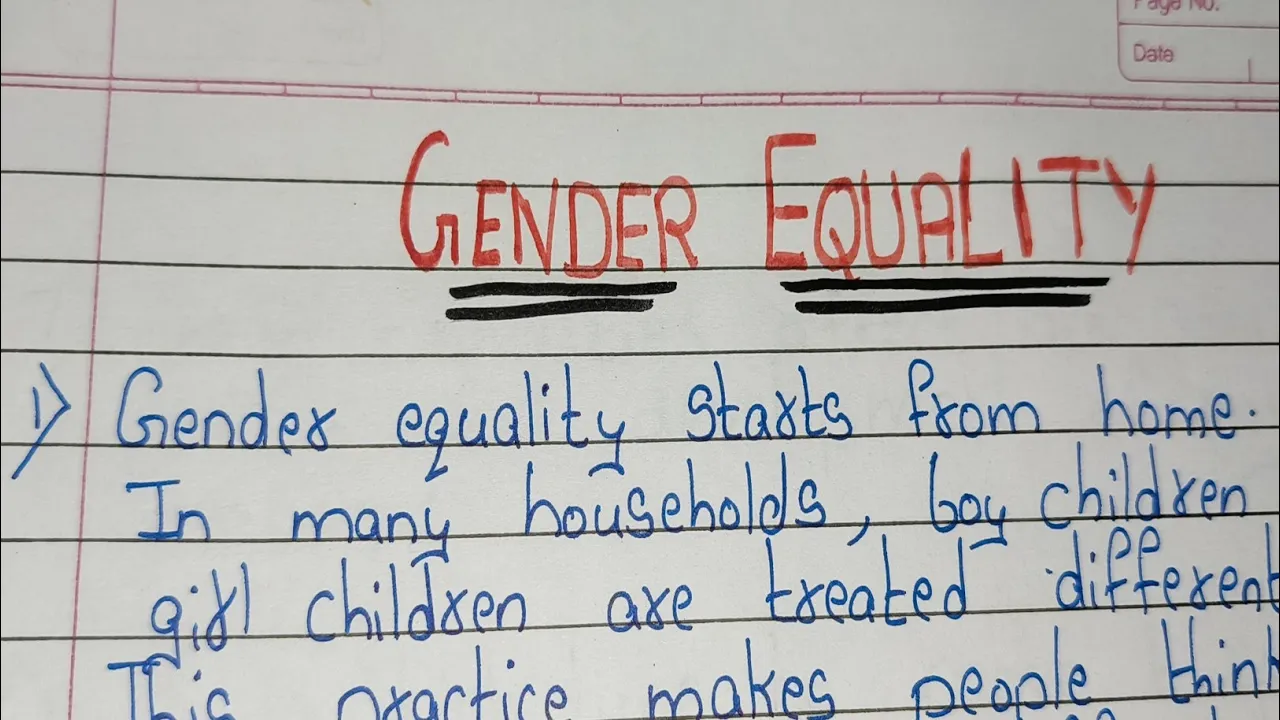 Page No.
Date
GENDER EQUALITY
1) Gender equality starts from home.
In many households, boy children
girl children are treated different
This practice makes people think